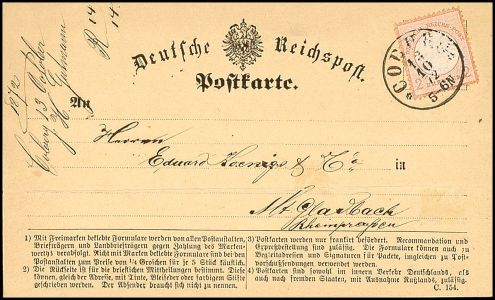 1872
Coburg 13 October
R 14
14.
Deutsche Reichspost.
Postkarte.
COBURG
13
10
72
5-6N.
An
Herren
Eduard Koenigs & Co
in
M. Gladbach
Rheinpreußen
1) Mit Freimarken beklebte Formulare werden von allen Postanstalten,
Briefträgern und Landbriefträgern gegen Zahlung des Marken-
werths verabfolgt. Nicht mit Marken beklebte Formulare sind bei den
Postanstalten zum Preise von ¼ Groschen für 5 Stück käuflich.
2) Die Rückseite ist für die brieflichen Mittheilungen bestimmt. Diese
können, gleich der Adresse, mit Tinte, Bleifeder oder farbigem Stift ge-
schrieben werden. Der Absender braucht sich nicht zu nennen.
3) Postkarten werden nur frankirt befördert. Recommandation und
Expreßbestellung sind zulässig. Die Formulare können auch zu
Begleitadressen und Signaturen für Packete, ingleichen zu Post-
vorschußbriefen verwendet werden.
4) Postkarten sind sowohl im innern Verkehr Deutschlands, als
auch nach fremden Staaten, mit Ausnahme Rußlands, zulässig.
C. 154.